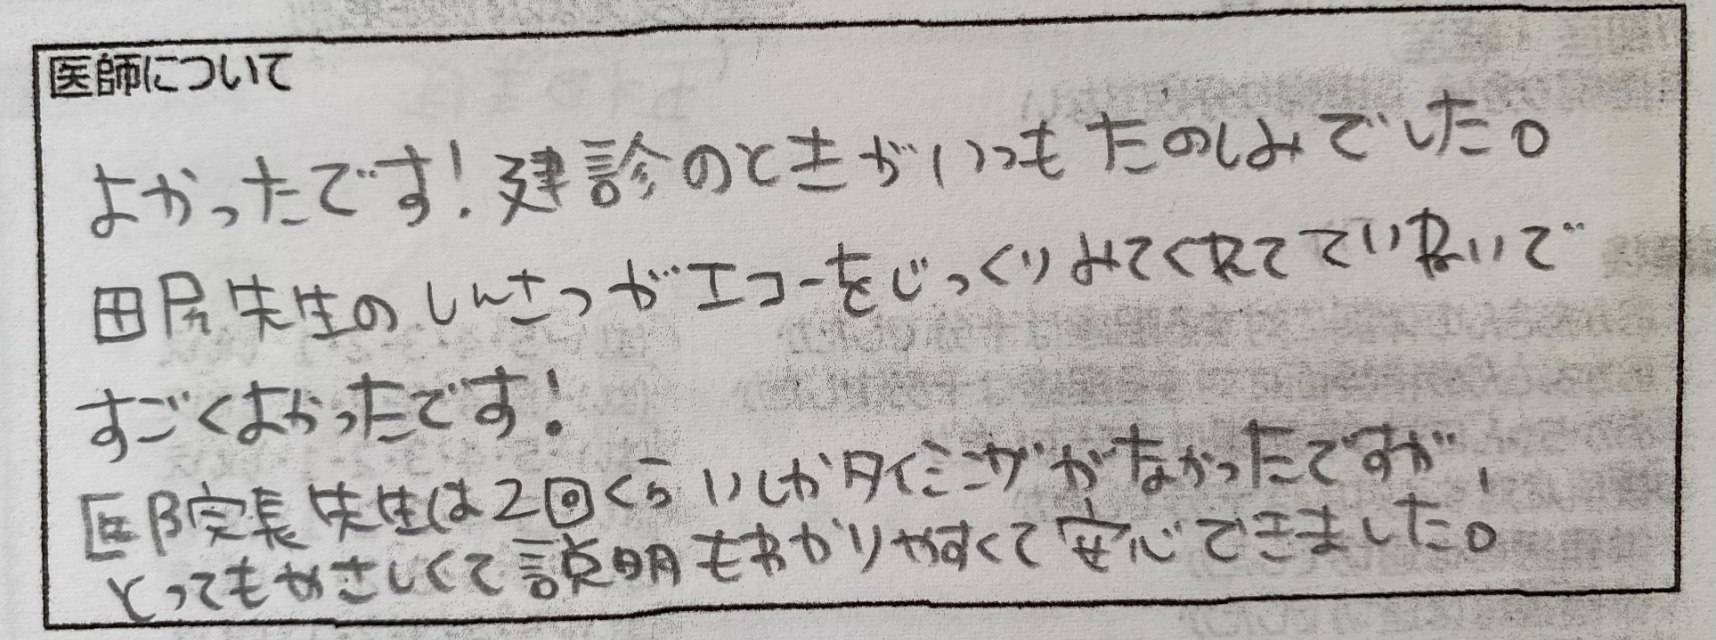 医師について
よかったです!建診のときがいつもたのしみでした。
田尻先生のしんさつがエコーをじっくりみてくれてていねいで
すごくよかったです!
医院長先生は2回くらいしかタイミングがなかったですが、
とってもやさしくて説明もわかりやすくて安心できました。